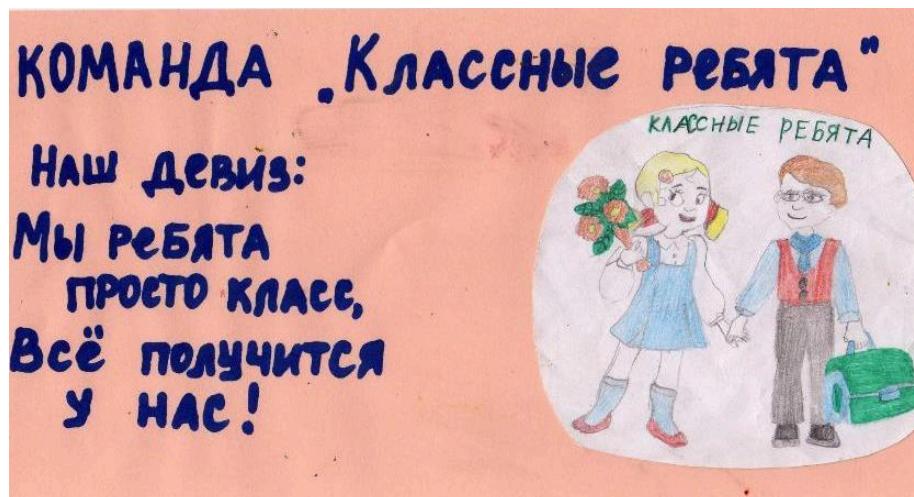 КОМАНДА „Классные ребята"
Наш девиз:
Мы ребята
просто класс,
Всё получится
у нас!
КЛАССНЫЕ РЕБЯТА